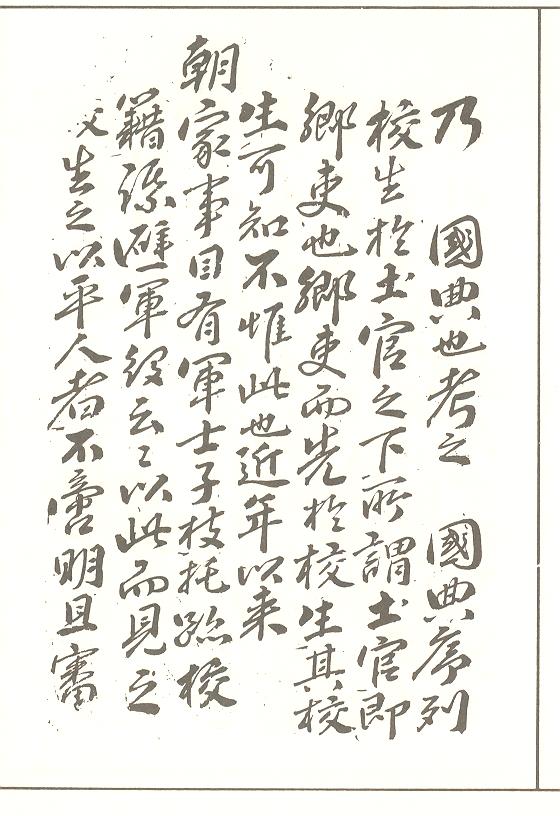 乃 國典也考之 國典序列
校生於土官之下所謂土官即
鄉吏也鄉吏而先於校生其校
生可知不惟此也近年以来
朝家事目有軍士子枝托跡校
籍謀避軍役云〻以此而見之
生之以平人者不啻明且審